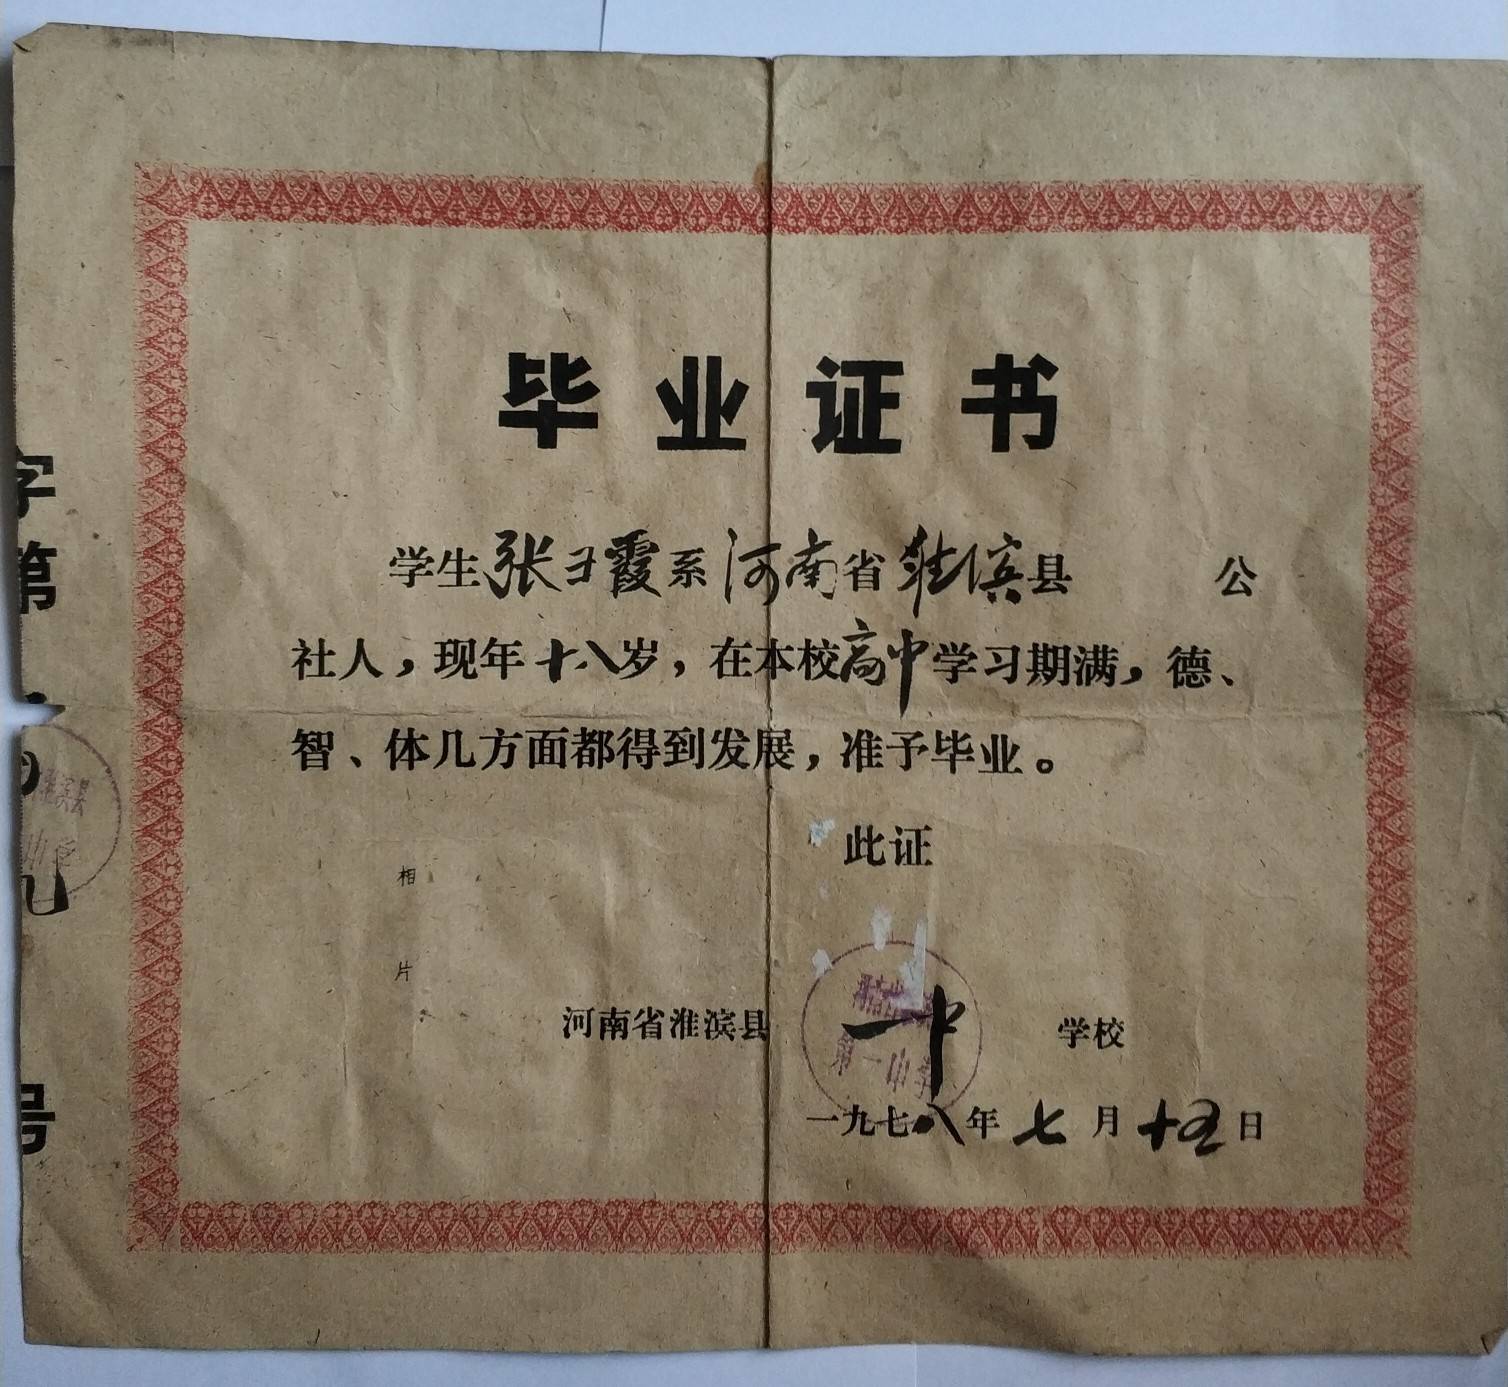 毕业证书
学生张卫霞系河南省淮滨县 公
社人，现年十八岁，在本校高中学习期满，德、
智、体几方面都得到发展，准予毕业。
此证
相
片
河南省淮滨县 一中 学校
第一中学
一九七八年七月十五日
字第
九
号
淮滨县
中学